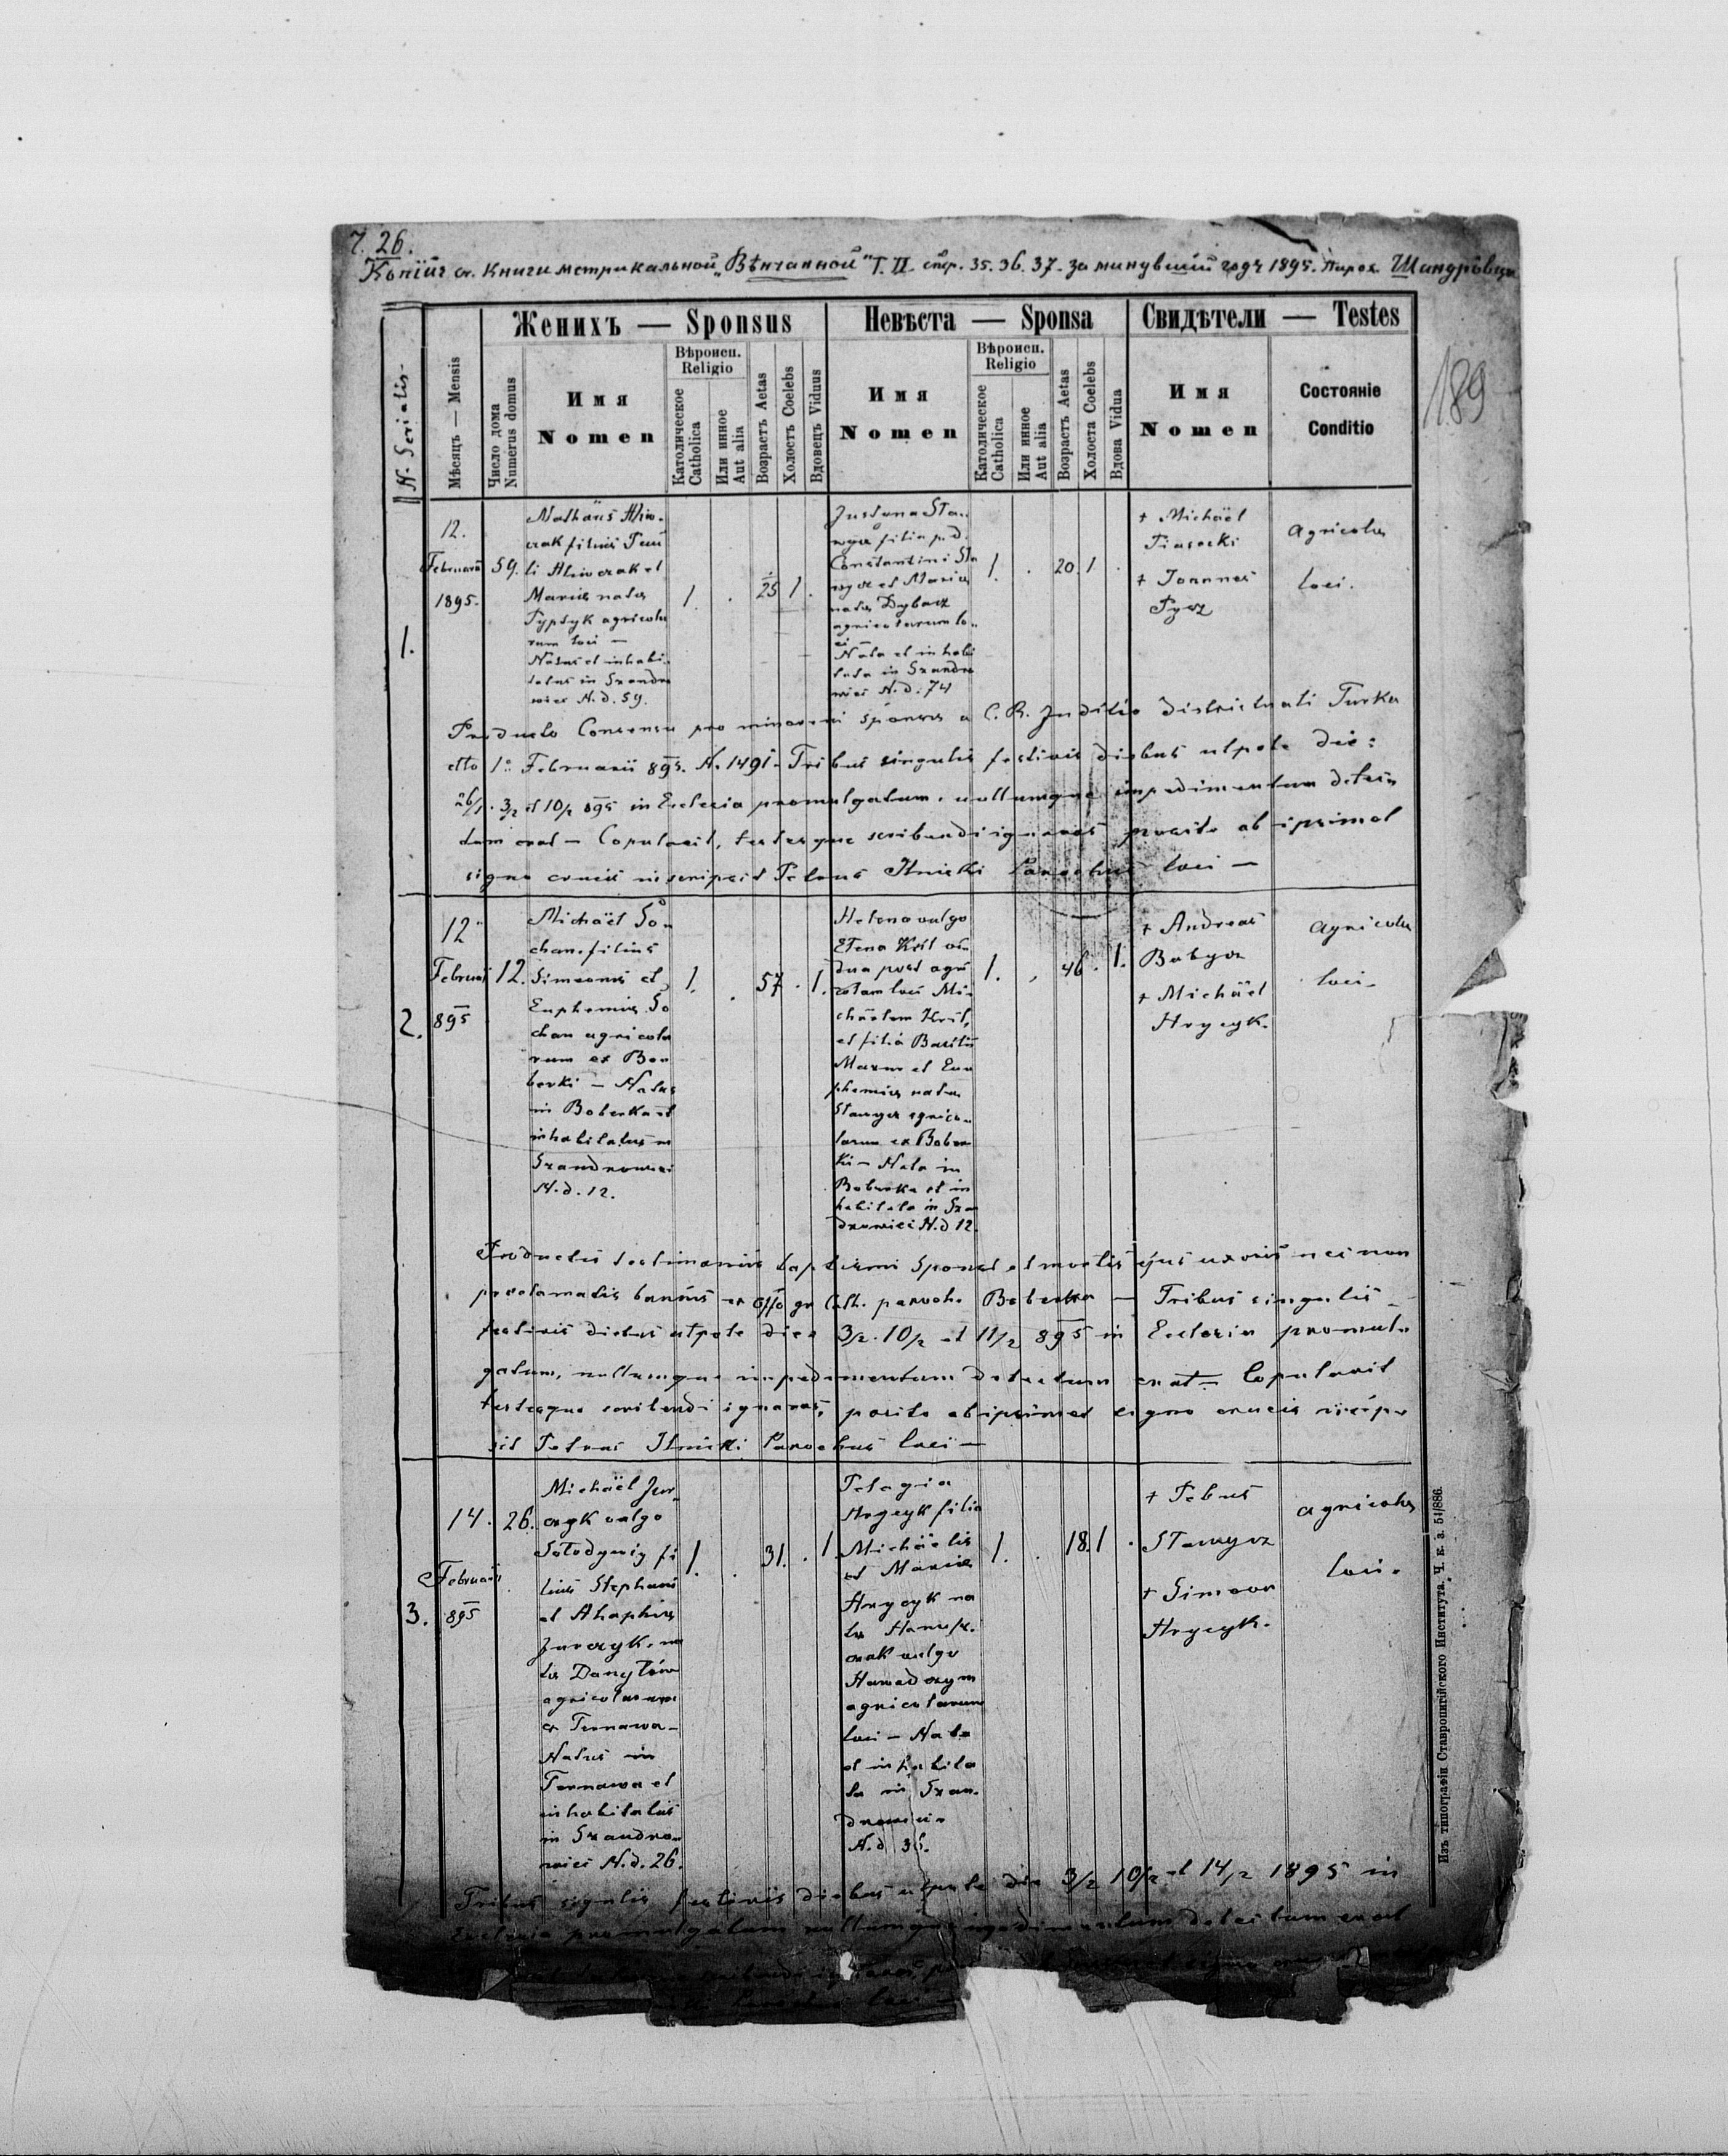 26.
Копіѧ Книги метрикальной „Вѣнчанной" Т. II. стр. 35. 36. 37. за минувшій годъ 1895. Парох.
189
Женихъ — Sponsus
Невѣста — Sponsa
Свидѣтели — Testes
N. Serialis
Мѣсяцъ — Mensis
Число дома
Numerus domus
Имя
Nomen
Вѣроисп.
Religio
Католическое
Catholica
Или инное
Aut alia
Возрастъ Aetas
Холостъ Coelebs
Вдовецъ Viduus
Имя
Nomen
Вѣроисп.
Religio
Католическое
Catholica
Или инное
Aut alia
Возрастъ Aetas
Холоста Coelebs
Вдова Vidua
Имя
Nomen
Состояніе
Conditio
1.
12.
Februarii
1895.
59.
filius
et
Mariae natae
agricola
rum loci —
Natus et inhabi
tatus in Szandro
wiec N. d. 59.
1. . 25 1 .
Justyna Sta
filia p. d.
Constantini Sta
et Mariae
natae Dybacz
agricolarum lo
ci
Nata et inhabi
tata in Szandro
wiec N. d. 74
1. . 20. 1 .
+ Michäel
+ Joannes
agricolae
loci.
Producto Consensu pro minorenni sponsa a C. R. Juditio Districtuali Turka
dtto 1º Februarii 895. N. 1491 — Tribus singulis festivis diebus utpote die:
26/1. 3/2 et 10/2 895 in Eclesia promulgatum, nullumque impedimentum detec
tum erat — Copulavit, testesque scribendi ignaros posito ab ipsimet
signo crucis inscripsit Petrus Ilnicki Parochus loci —
2.
12
Februarii
895
12.
Michäel So
chan filius
Simeonis et
Euphemiae So
chan agricola
rum ex Bo
berki — Natus
in Boberka et
inhabitatus in
Szandrowiec
N. d. 12.
1. . 57 . 1.
Helena vulgo
Ełena Kril vi
dua post agri
colam loci Mi
chäelem Kril,
et filia Basilii
et Eu
phemiae natae
Stawycz agrico
larum ex Bober
ki — Nata in
Boberka et in
habitata in Szan
drowiec N. d 12.
1. . 46 . 1.
+ Andreas
Babycz
+ Michäel
Hrycyk.
agricolae
loci.
Productis testimoniis baptismi Sponsi et mortis ejus uxoris nec non
proclamatis bannis ex offo gr. Cath. paroch. Boberka — Tribus singulis
festivis diebus utpote die 3/2. 10/2 et 11/2 895 in Eclesia promul
gatum, nullumque impedimentum detectum erat — Copulavit
testesque scribendi ignaros, posito ab ipsimet signo crucis inscrip
sit Petrus Ilnicki Parochus loci —
3.
14.
Februarii
895
26.
Michäel Jur
czyk vulgo
fi
lius Stephani
et Ahaphiae
Jurczyk, na
tae Danyłów
agricolarum
ex Ternawa —
Natus in
Ternawa et
inhabitatus
in Szandro
wiec N. d. 26.
1. . 31. . 1.
Pelagia
Hrycyk filia
Michäelis
et Mariae
Hrycyk na
tae
vulgo
agricolarum
loci — Nata
et inhabita
ta in Szan
drowiec
N. d. 36.
1. . 18. 1 .
+ Petrus
Stawycz
+ Simeon
Hrycyk.
agricolae
loci.
Tribus singulis festivis diebus utpote die 3/2 10/2 et 14/2 1895 in
Eclesia promulgatum nullumque impedimentum detectum erat
scribendi ignaros
Parochus loci —
Изъ типографіи Ставропигійского Института. Ч. к. з. 54/886.